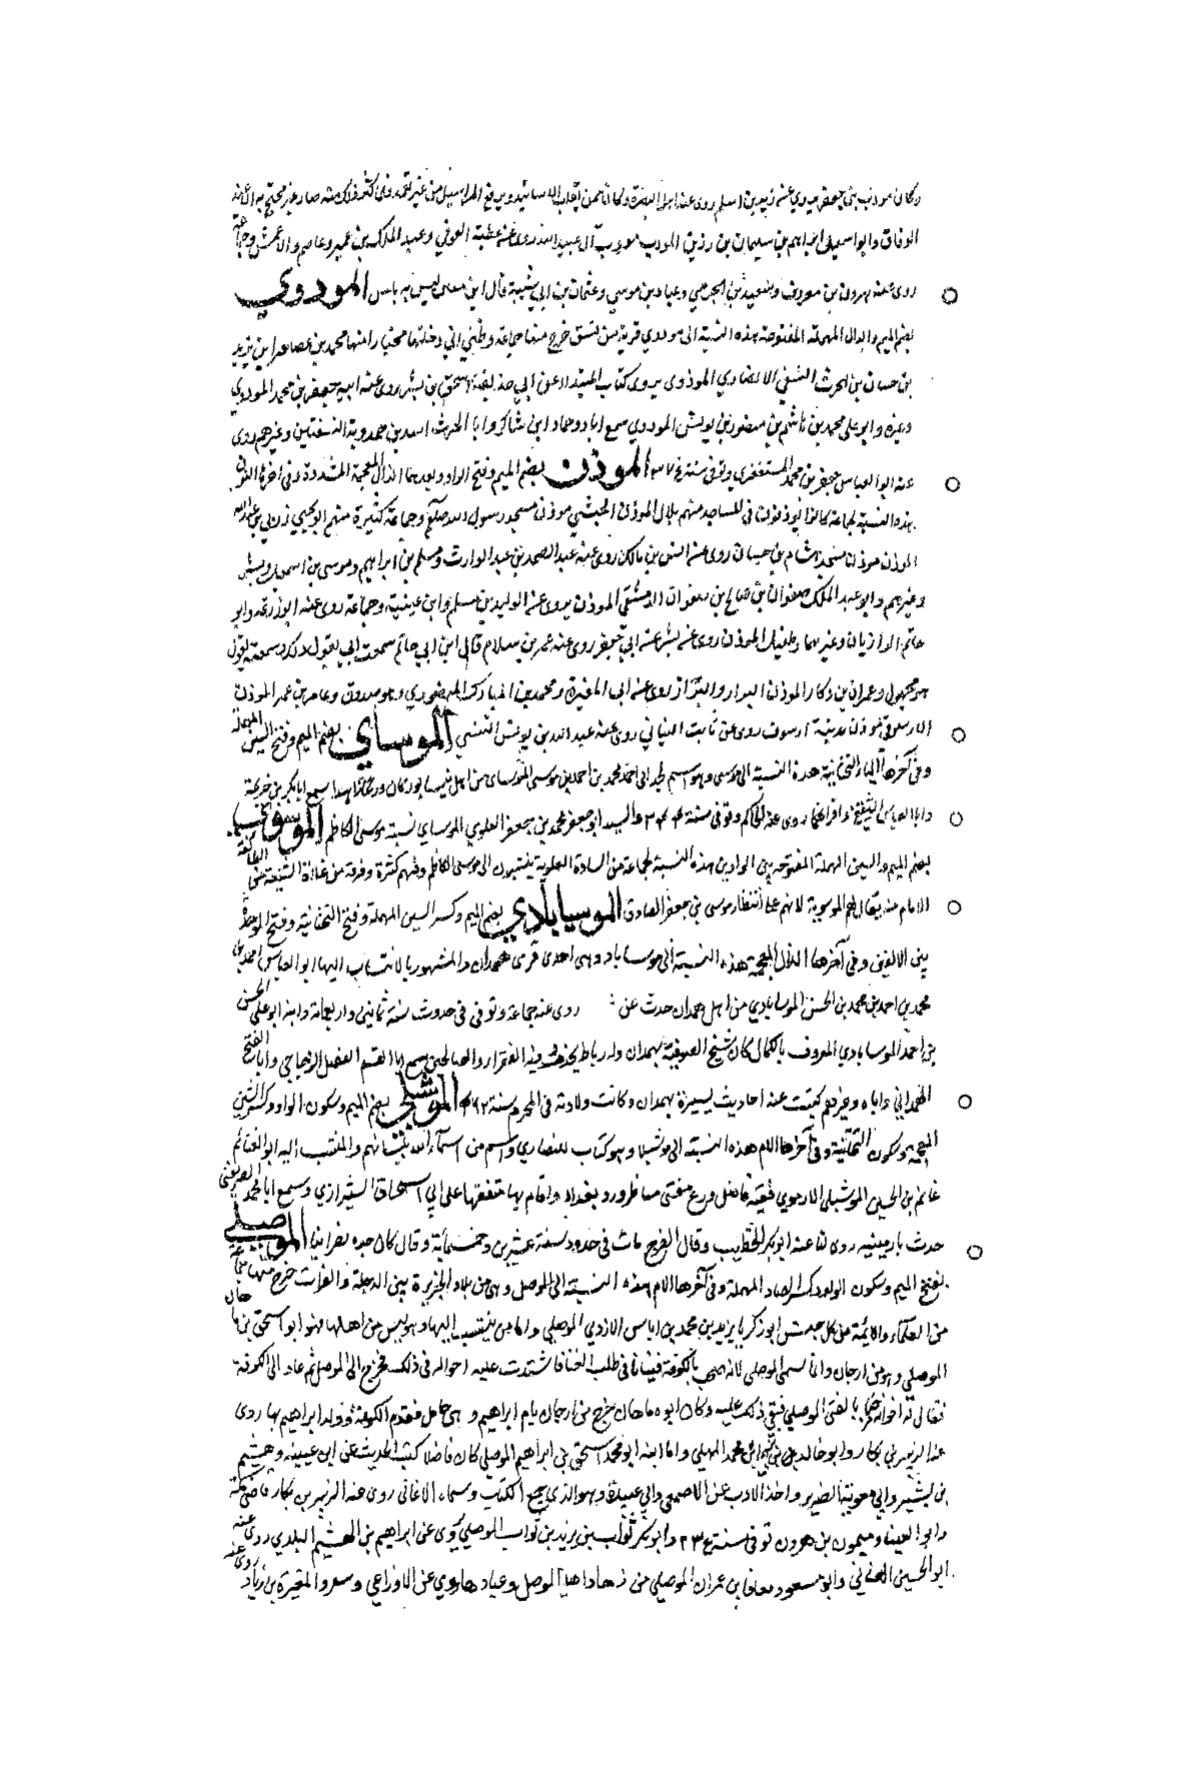 وكان مودب بني جعفر يروي عنه زيد بن اسلم روى عنه اهل البصرة وكان ممن يقلب الاسانيد ويرفع المراسيل من غير تعمد فلما كثر ذلك منه صار غير محتج به الا عند
الوفاق وابو اسمعيل ابراهيم بن سليمان بن رزين المودب مودب آل عبيد الله روى عن عطية العوفي وعبد الملك بن عمير وعاصم والاعمش وجماعة
روى عنه هرون بن معروف وسعيد بن الجرمي وعباد بن موسى وعثمان بن ابي شيبة قال ابن معين ليس به باس المودوي
بضم الميم والدال المهملة المفتوحة هذه النسبة الى مودي قرية من نسف خرج منها جماعة وظني اني دخلتها مجتازا منها محمد بن عصام بن يزيد
بن حسان بن الحرث النسفي الانصاري المودوي يروي كتاب المبتدا عن ابي حذيفة اسحق بن بشر روى عنه ابنه جعفر بن محمد المودوي
وغيره وابو علي محمد بن هاشم بن منصور بن يونس المودوي سمع اباه وحماد بن شاكر وابا الحرث اسد بن حمدوية النسفيين وغيرهم روى
عنه ابو العباس جعفر بن محمد المستغفري وتوفي سنة المؤذن بضم الميم وفتح الواو وبعدهما الذال المعجمة المشددة وفي اخرها النون
هذه النسبة لجماعة كانوا يؤذنون في المساجد منهم بلال المؤذن الحبشي موذن مسجد رسول الله صلعم وجماعة كثيرة منهم ابو يحيى زربي بن عبد الله
الموذن موذن مسجد هشام بن حسان روى عن انس بن مالك روى عنه عبد الصمد بن عبد الوارث ومسلم بن ابراهيم وموسى بن اسمعيل وبشر
وغيرهم وابو عبد الملك صفوان بن صالح بن صفوان الدمشقي الموذن يروي عن الوليد بن مسلم وابن عيينة وجماعة روى عنه ابو زرعه وابو
حاتم الرازيان وغيرهما وطفيل الموذن روى عن بشر عن ابي جعفر روى عنه عمر بن سلام قال ابن ابي حاتم سمعت ابي يقول ذلك وسمعته يقول
هو مجهول وعمران بن زكار الموذن البراد والبزاز روى عن ابي المغيرة ومحمد بن المبارك الصوري وهو صدوق وعامر بن عمر الموذن
الارسوفي موذن مدينة ارسوف روى عن ثابت البناني روى عنه عبد الله بن يونس التنيسي الموساي بضم الميم وفتح السين المهملة
وفي آخرها الياء التحتانية هذه النسبة الى موسى وهو اسم لجد ابي احمد محمد بن احمد بن موسى الموساي من اهل نيسابور كان ورعا زاهدا سمع ابا بكر بن خزيمة
وابا العباس الثقفي واقرانهما روى عنه الحاكم وتوفي سنة والسيد ابو جعفر محمد بن جعفر العلوي الموساي نسبة موسى الكاظم الموسوي
بضم الميم والسين المهملة المفتوحة بين الواوين هذه النسبة لجماعة من السادة العلوية ينتسبون الى موسى الكاظم وفيهم كثرة وفرقة من غلاة الشيعة الطائفة
الامام منه يقال لهم الموسوية لانهم على انتظار موسى بن جعفر الصادق الموسيابادي بضم الميم وكسر السين المهملة وفتح التحتانية وفتح الموحدة
بين الالفين وفي آخرها الذال المعجمة هذه النسبة الى موسياباد وهي احدى قرى همدان والمشهور بالانتساب اليها ابو العباس احمد بن
محمد بن احمد بن محمد بن الحسن الموسيابادي من اهل همدان حدث عن : روى عنه جماعة وتوفي في حدود سنة ثمانين واربعمائة وابنه ابو علي الحسن
بن احمد الموسيابادي المعروف بالكمال كان شيخ الصوفية بهمدان وله رباط يخدم فيه الفقراء والصالحين سمع ابا القسم الفضل الزجاجي وابا الفتح
الهمداني واباه وغيرهم كتبت عنه احاديث يسيرة بهمدان وكانت ولادته في المحرم سنة الموشيلي بضم الميم وسكون الواو وكسر الشين
المعجمة وسكون التحتانية وفي آخرها اللام هذه النسبة الى موشيلا وهو كتاب للنصارى واسم من اسماء الله بلسانهم والمنتسب اليه ابو الغنائم
غانم بن الحسين الموشيلي الارموي فقيه فاضل ورع مفتي مناظر ورد بغداد واقام بها متفقها على ابي اسحاق الشيرازي وسمع ابا محمد الصريفيني
حدث بارمينيه روى لنا عنه ابو بكر الخطيب وقال الفرج مات في حدود سنة عشرين وخمسمائة وقال كان جده نصرانيا الموصلي
بفتح الميم وسكون الواو وكسر الصاد المهملة وفي آخرها اللام هذه النسبة الى الموصل وهي من بلاد الجزيرة بين الدجلة والفرات خرج منها جماعة
من العلماء والائمة من كل جنس ابو زكريا يزيد بن محمد بن اياس الازدي الموصلي واما من ينتسب اليها وهو ليس من اهلها فهو ابو اسحق بن ماهان
الموصلي وهو من ارجان وانما سمي الموصلي لانه صحب بالكوفة فتيانا في طلب الغنا فاشتدت عليه احواله في ذلك فخرج الى الموصل ثم عاد الى الكوفة
فقال له اخوانه مرحبا بالفتى الموصلي فبقي ذلك عليه وكان ابوه ماهان خرج من ارجان بام ابراهيم وهي حامل فقدم الكوفة فولد ابراهيم بها روى
عنه الزبير بن بكار وابو خالد بن محمد المهلبي واما ابنه ابو محمد اسحق بن ابراهيم الموصلي كان فاضلا كتب الحديث عن ابن عيينه وهشيم
بن بشير وابي معوية الضرير واخذ الادب عن الاصمعي وابي عبيدة وهو الذي جمع الكتب وسماه الاغاني روى عنه الزبير بن بكار قاضي مكة
وابو العينا وميمون بن هرون توفي سنة ٢٣٤ وابو بكر ثواب بن يزيد بن ثواب الموصلي يروي عن ابراهيم بن الهشيم البلدي روى عنه
ابو الحسين الغساني وابو مسعود معافا بن عمران الموصلي من زهاد اهل الموصل وعبادها يروي عن الاوزاعي وسعر والمغيرة بن زياد روى عنه